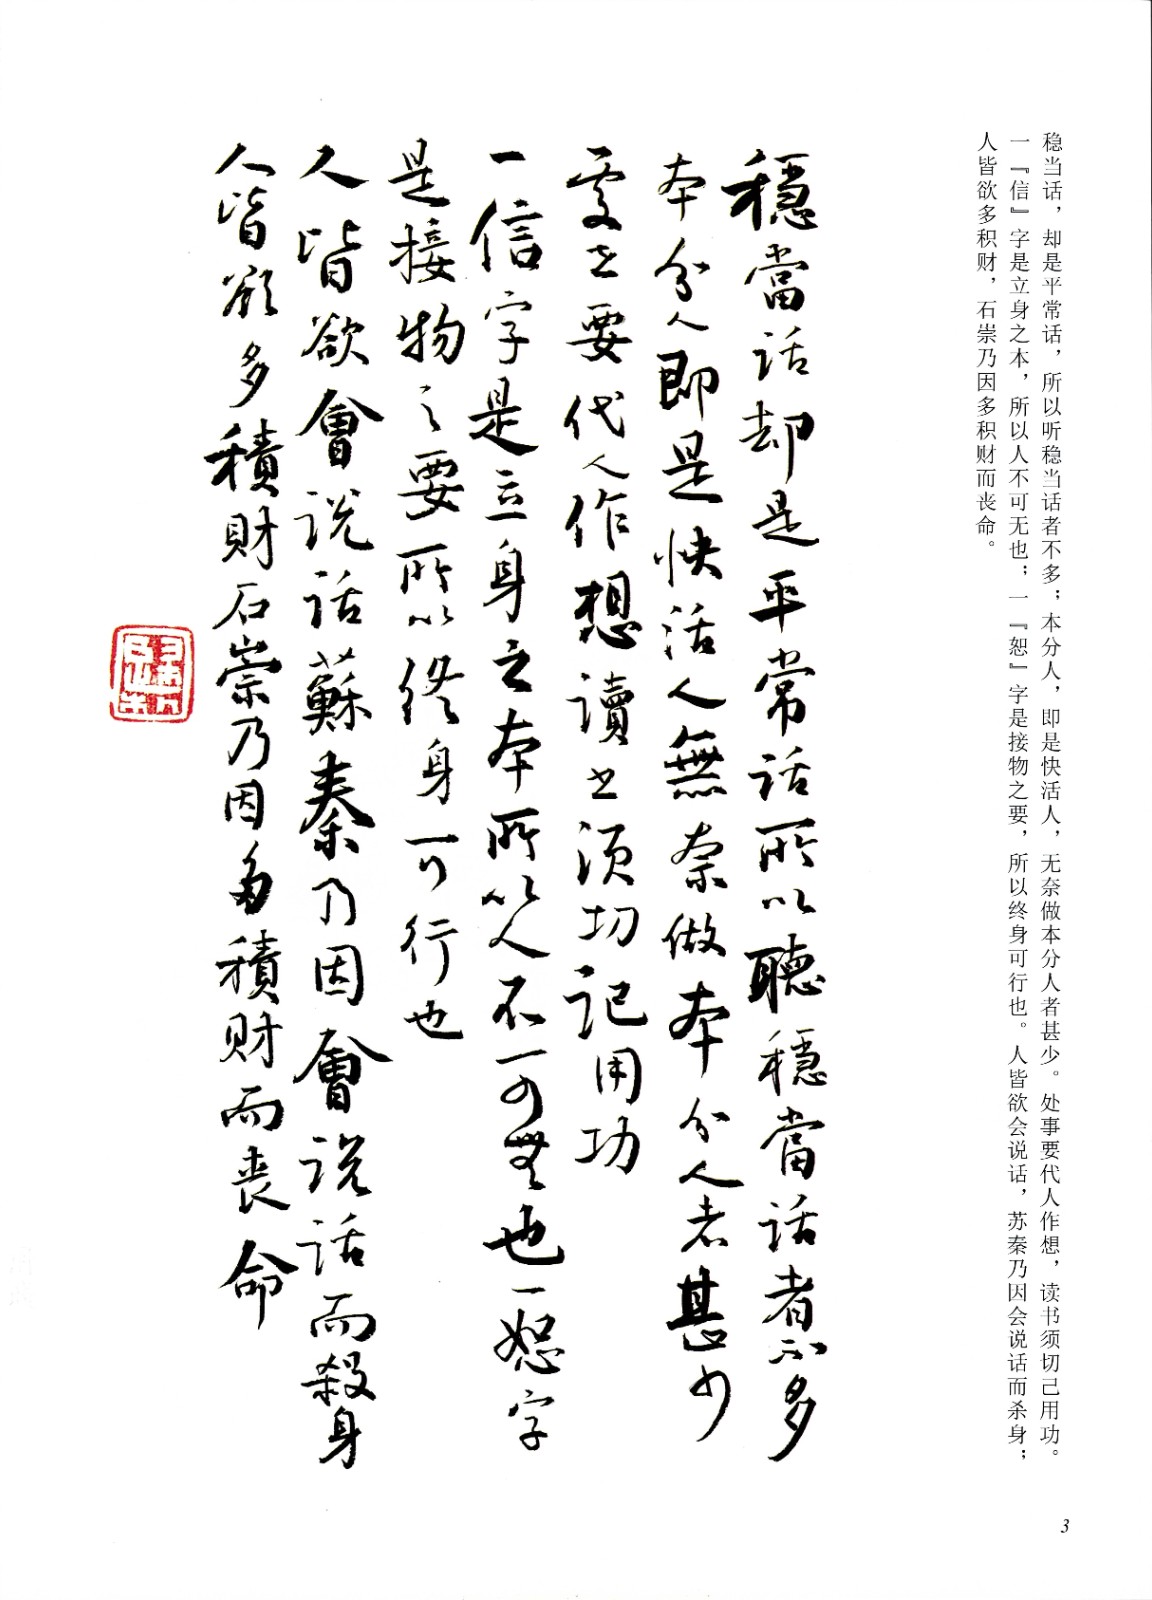 稳当话，却是平常话，所以听稳当话者不多；本分人，即是快活人，无奈做本分人者甚少。处事要代人作想，读书须切己用功。
一『信』字是立身之本，所以人不可无也；一『恕』字是接物之要，所以终身可行也。人皆欲会说话，苏秦乃因会说话而杀身；
人皆欲多积财，石崇乃因多积财而丧命。
穩當話却是平常話所以聽穩當話者不多
本分人即是快活人無奈做本分人者甚少
處世要代人作想讀书須切記用功
一信字是立身之本所以人不可無也一恕字
是接物之要所以終身可行也
人皆欲會説話蘇秦乃因會説話而殺身
人皆欲多積財石崇乃因多積財而喪命
3